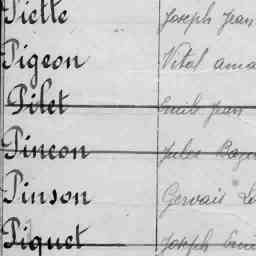 Piette Joseph Jean
Pigeon Vital
Pilet Emile Jean
Pincon Jules
Pinson Gervais
Piquet Joseph